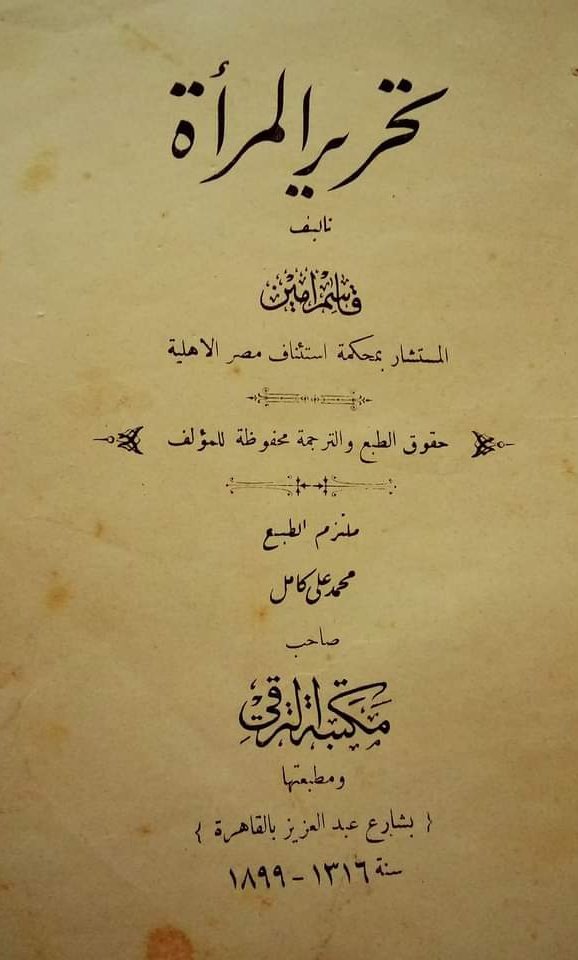 تحرير المرأة
تأليف
قاسم امين
المستشار بمحكمة استئناف مصر الاهلية
حقوق الطبع والترجمة محفوظة للمؤلف
ملتزم الطبع
محمد علي كامل
صاحب
مكتبة الترقي
ومطبعتها
{ بشارع عبد العزيز بالقاهرة }
سنة ١٣١٦ – ١٨٩٩